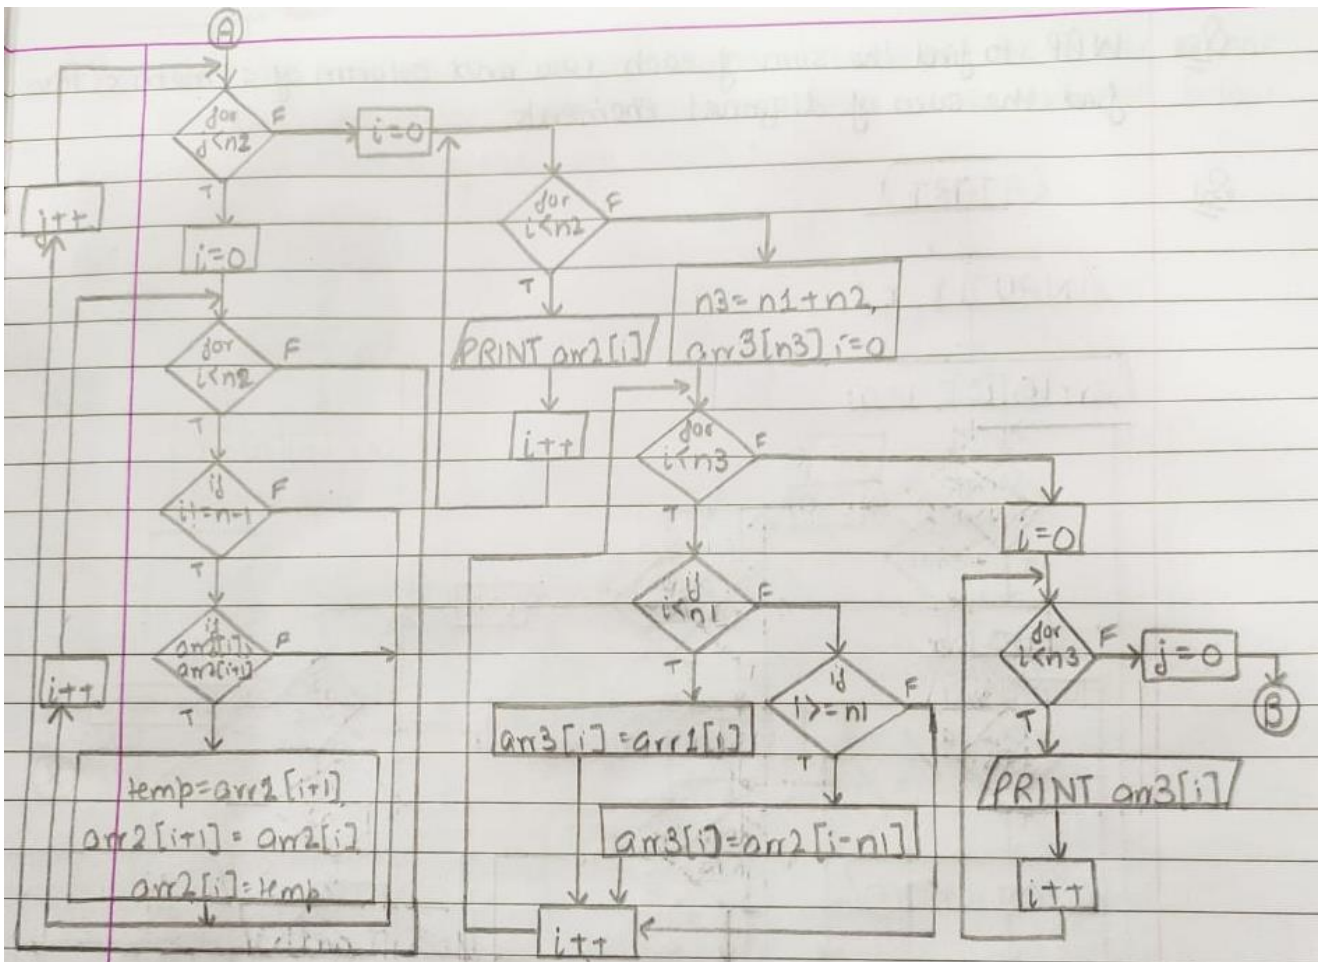 A
for
j<n2
F
T
j++
i=0
for
i<n2
F
T
if
i!=n-1
F
T
if
arr2[i+1]
F
T
i++
temp=arr2[i+1],
arr2[i+1]=arr2[i]
arr2[i]=temp
i=0
for
i<n2
F
T
PRINT arr2[i]
i++
n3=n1+n2,
arr3[n3],i=0
for
i<n3
F
T
if
i<n1
F
T
arr3[i]=arr1[i]
if
i>=n1
F
T
arr3[i]=arr2[i-n1]
i++
i=0
for
i<n3
F
T
PRINT arr3[i]
i++
j=0
B